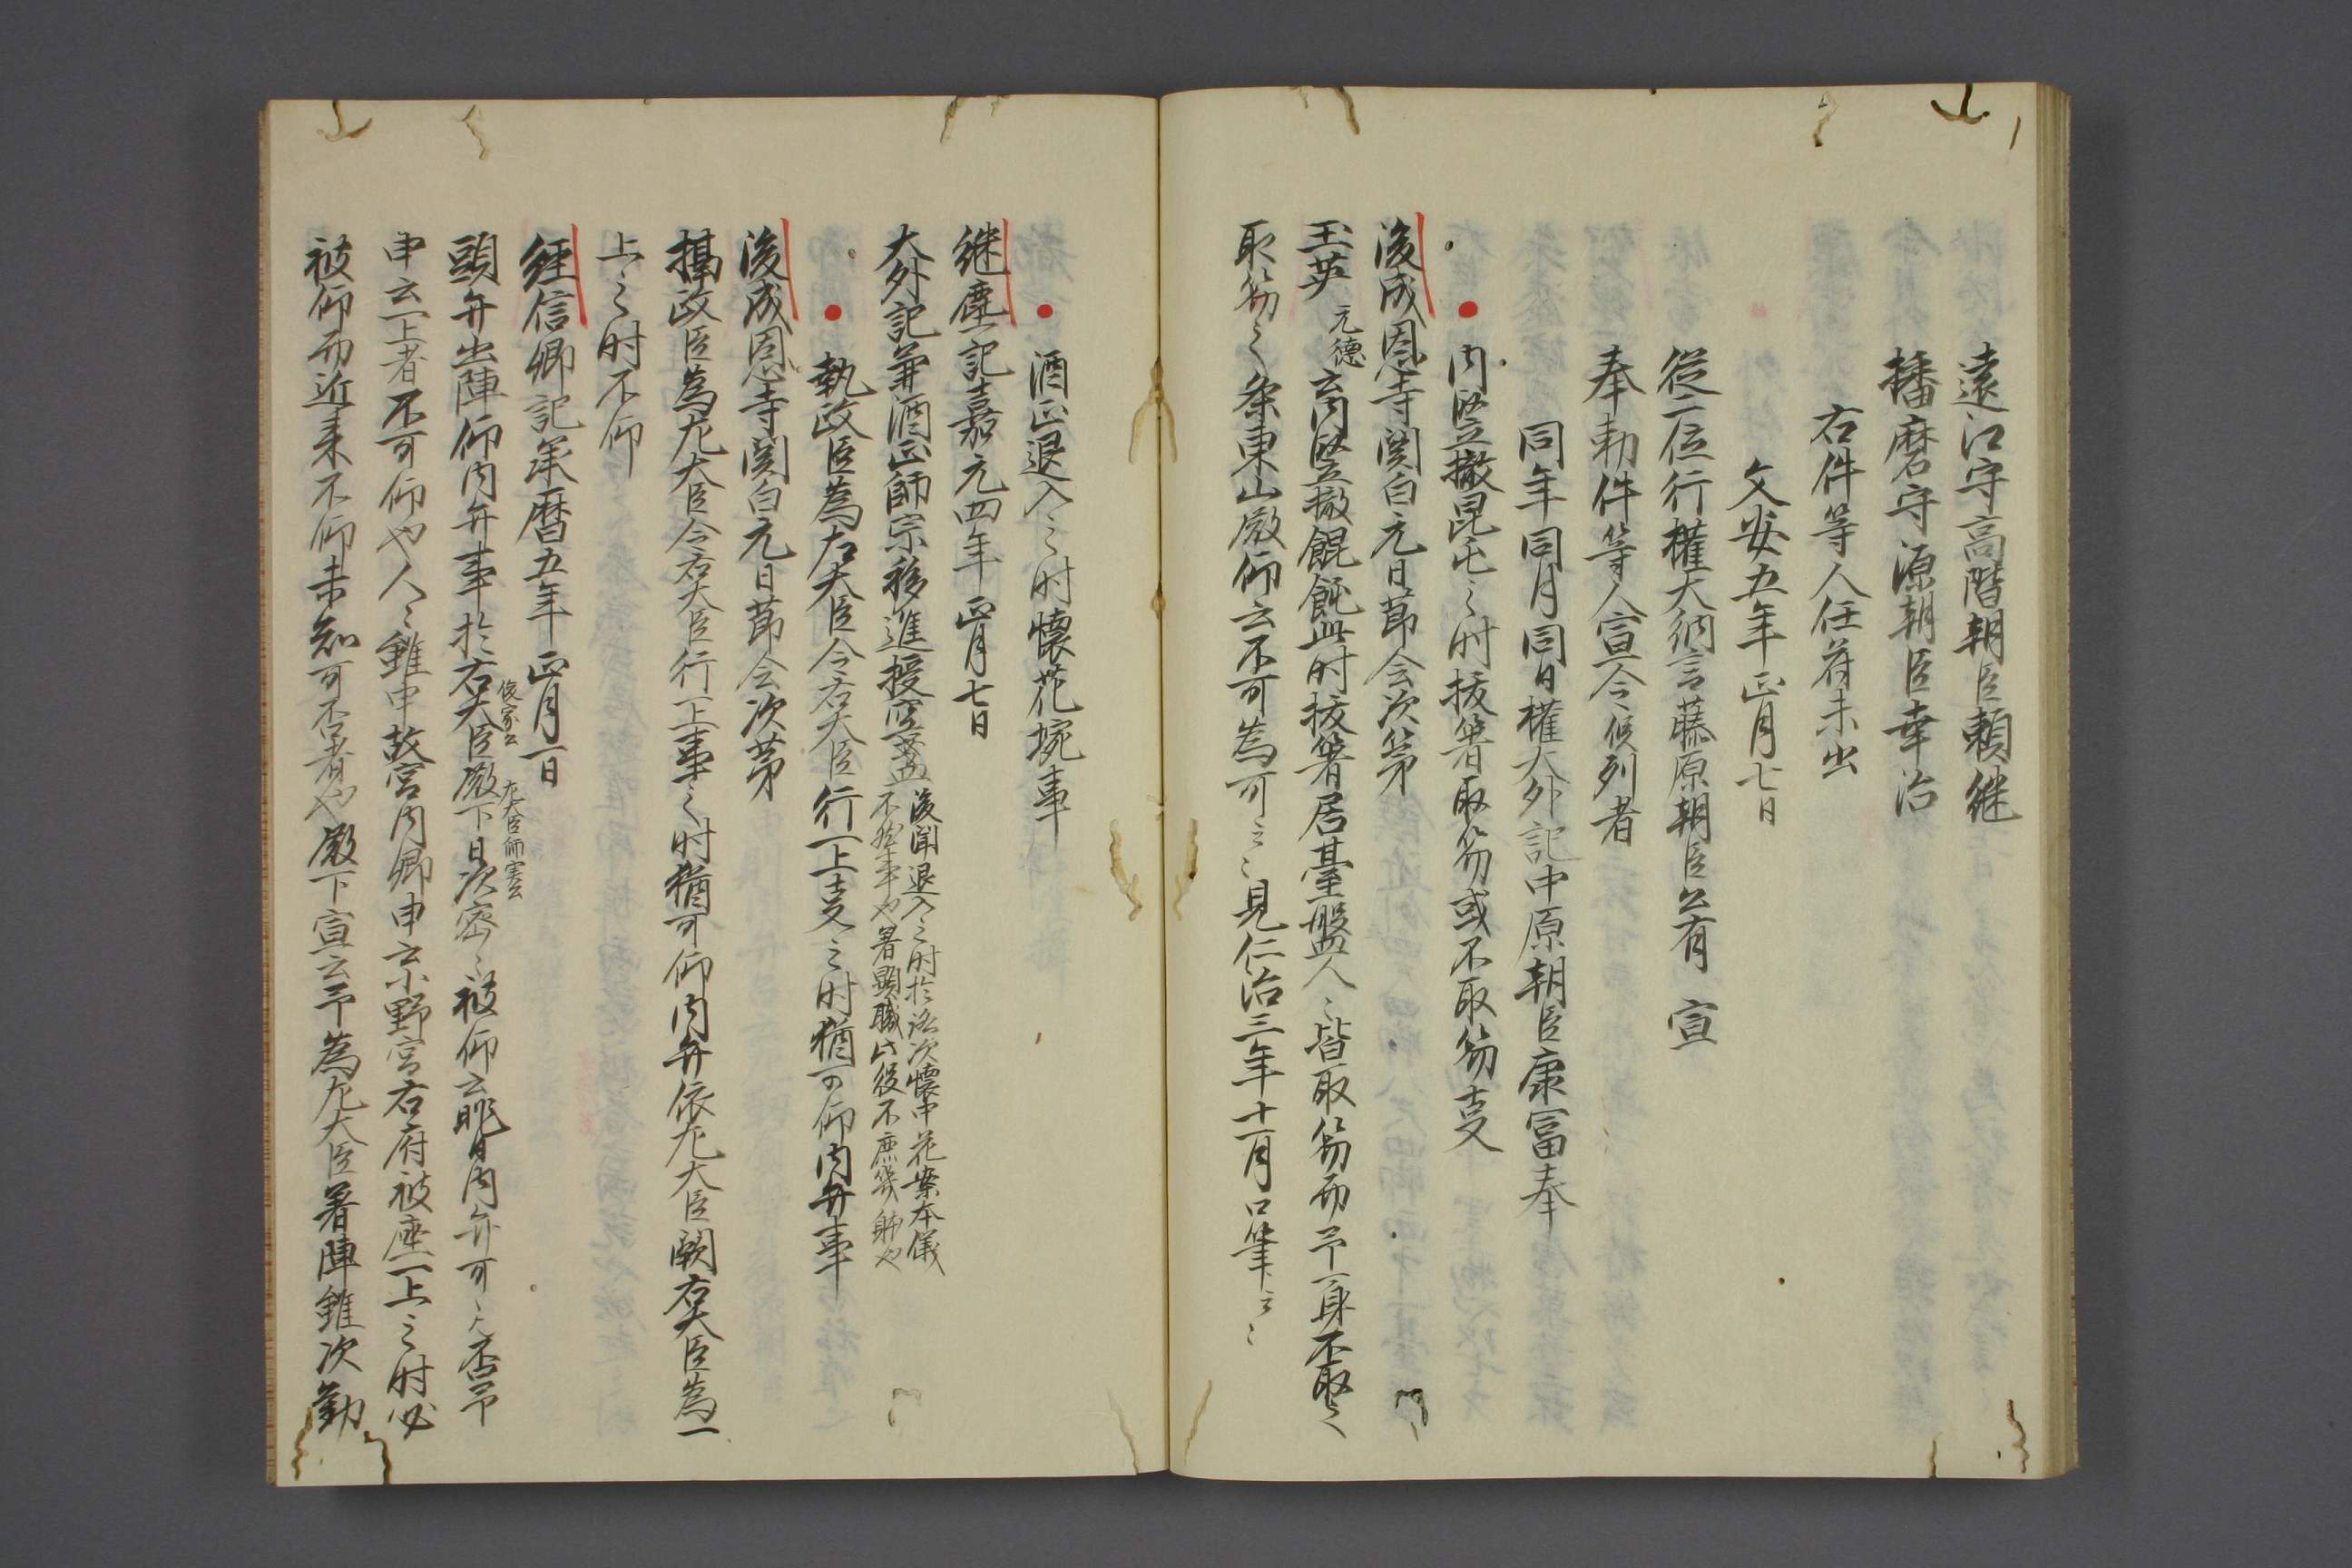 遠江守高階朝臣頼継
播磨守源朝臣幸治
右件等人任符未出
文安五年正月七日
従二位行権大納言藤原朝臣公有　宣
奉勅件等人宣令候列者
同年同月同日権大外記中原朝臣康冨奉
内竪撤昆屯之时抜箸取笏或不取笏支
後成恩寺関白元日莭会次第
玉英　元徳　六　内竪撤餛飩此时抜箸居臺盤人〻皆取笏而予一身不取之
取笏之条東山殿仰云不可為可云〻見仁治三年十一月口筆云〻
酒正退入之时懐花埦事
継塵記嘉元四年正月七日
大外記兼酒正師宗移進授空盞
後聞退入之时於路次懐中花案本儀
不然事也暑顕職此役不庶幾躰也
執政臣為右大臣令右大臣行一上支之时猶可仰内弁事
後成恩寺関白元日莭会次苐
摂政臣為左大臣令右大臣行一上事之时猶可仰内弁依左大臣闕右大臣為一
上之时不仰
経信卿記承暦五年正月一日
頭弁出陣仰内弁事於右大臣　俊家公　殿下　左大臣師実公　日次密〻被仰云昨日内弁可〻否予
申云一上者不可仰也人〻雖申故宮内卿申云小野宮右府被座一上之时必
被仰而近来不仰未知可否者也殿下宣云予為左大臣著陣雖次勤